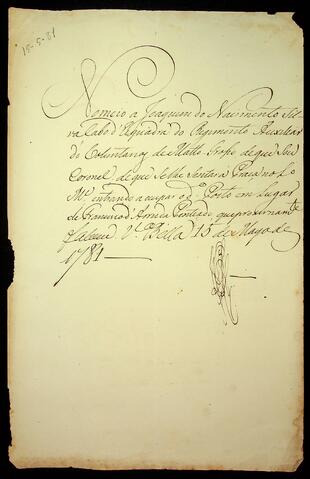 15-5-81
Nomeio a Joaquim do Nascimento Sil-
va Cabo d'Esquadra do Regimento Auxiliar
de Voluntarios de Matto Grosso de que Sou
Coronel de que se lhe Sentará Praça no L.o
M.e entrando a ocupar o d.o Posto em Lugar
de Francisco d' Penteado que proximam.te
faleceu V.a Bella 15 de Mayo de
1781